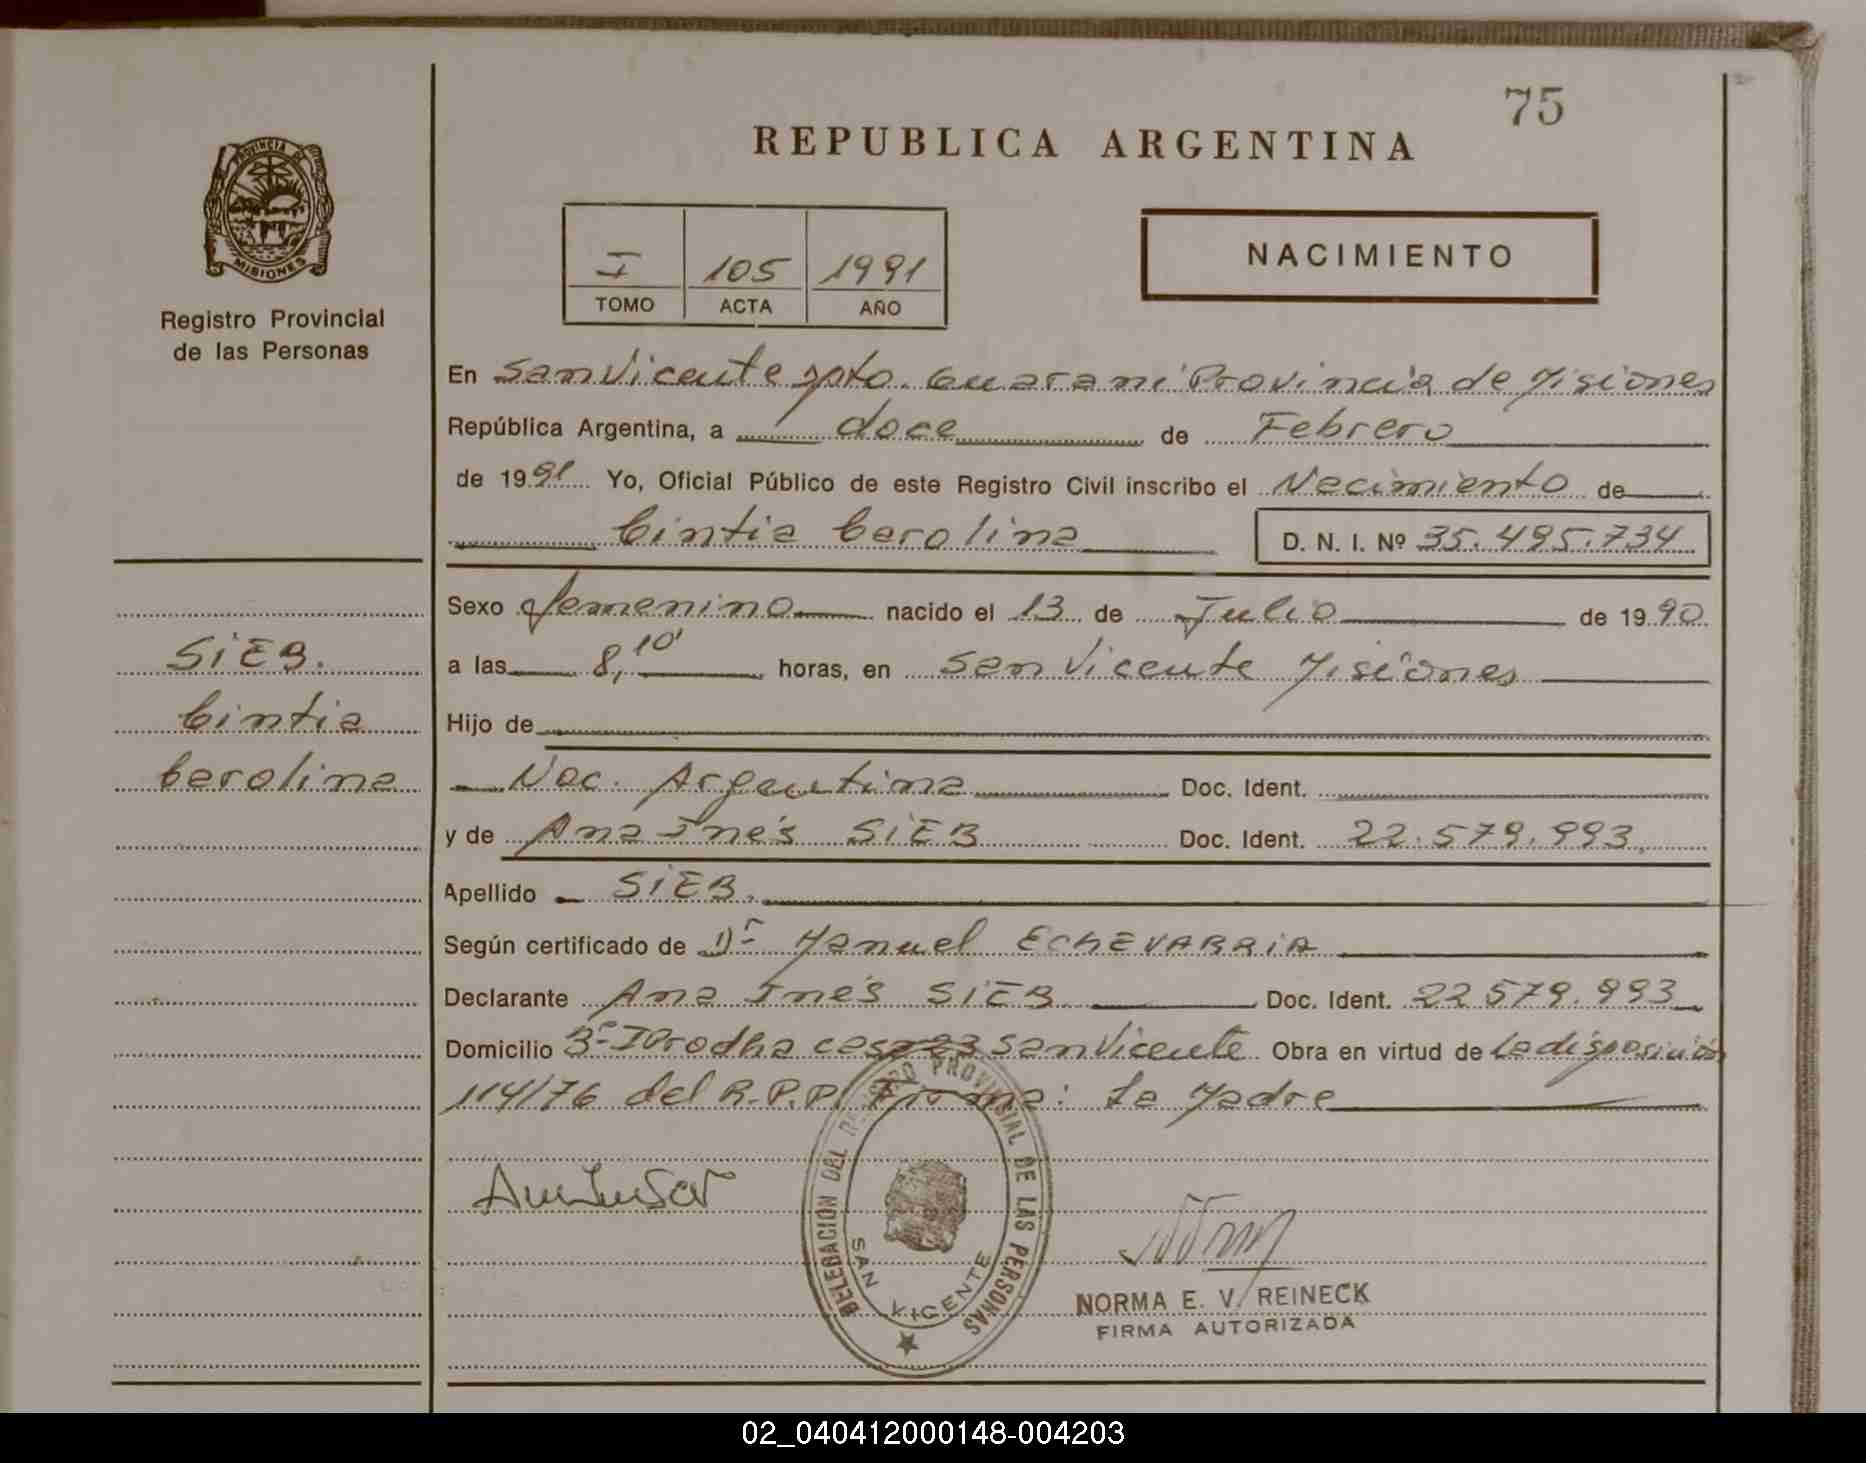 75
REPUBLICA ARGENTINA
PROVINCIA DE
MISIONES
Registro Provincial
de las Personas
I 105 1991
TOMO ACTA AÑO
NACIMIENTO
En San Vicente Dpto. Guaraní Provincia de Misiones
República Argentina, a doce de Febrero
de 1991 Yo, Oficial Público de este Registro Civil inscribo el Nacimiento de
Cintia Carolina D. N. I. Nº 35.495.734
Sexo femenino nacido el 13 de Julio de 1990
a las 8,10' horas, en San Vicente Misiones
Hijo de
Nac. Argentina Doc. Ident.
y de Ana Inés SiEB Doc. Ident. 22.579.993.
Apellido SiEB.
Según certificado de Dr Manuel ECHEVARRIA
Declarante Ana Inés SiEB Doc. Ident. 22579.993
Domicilio Bº casa 23 San Vicente Obra en virtud de la disposición
114/76 del R.P.P. Firma: la Madre
SiEB.
Cintia
Carolina
DELEGACIÓN DEL REGISTRO PROVINCIAL DE LAS PERSONAS
SAN VICENTE
NORMA E. V. REINECK
FIRMA AUTORIZADA
02_040412000148-004203